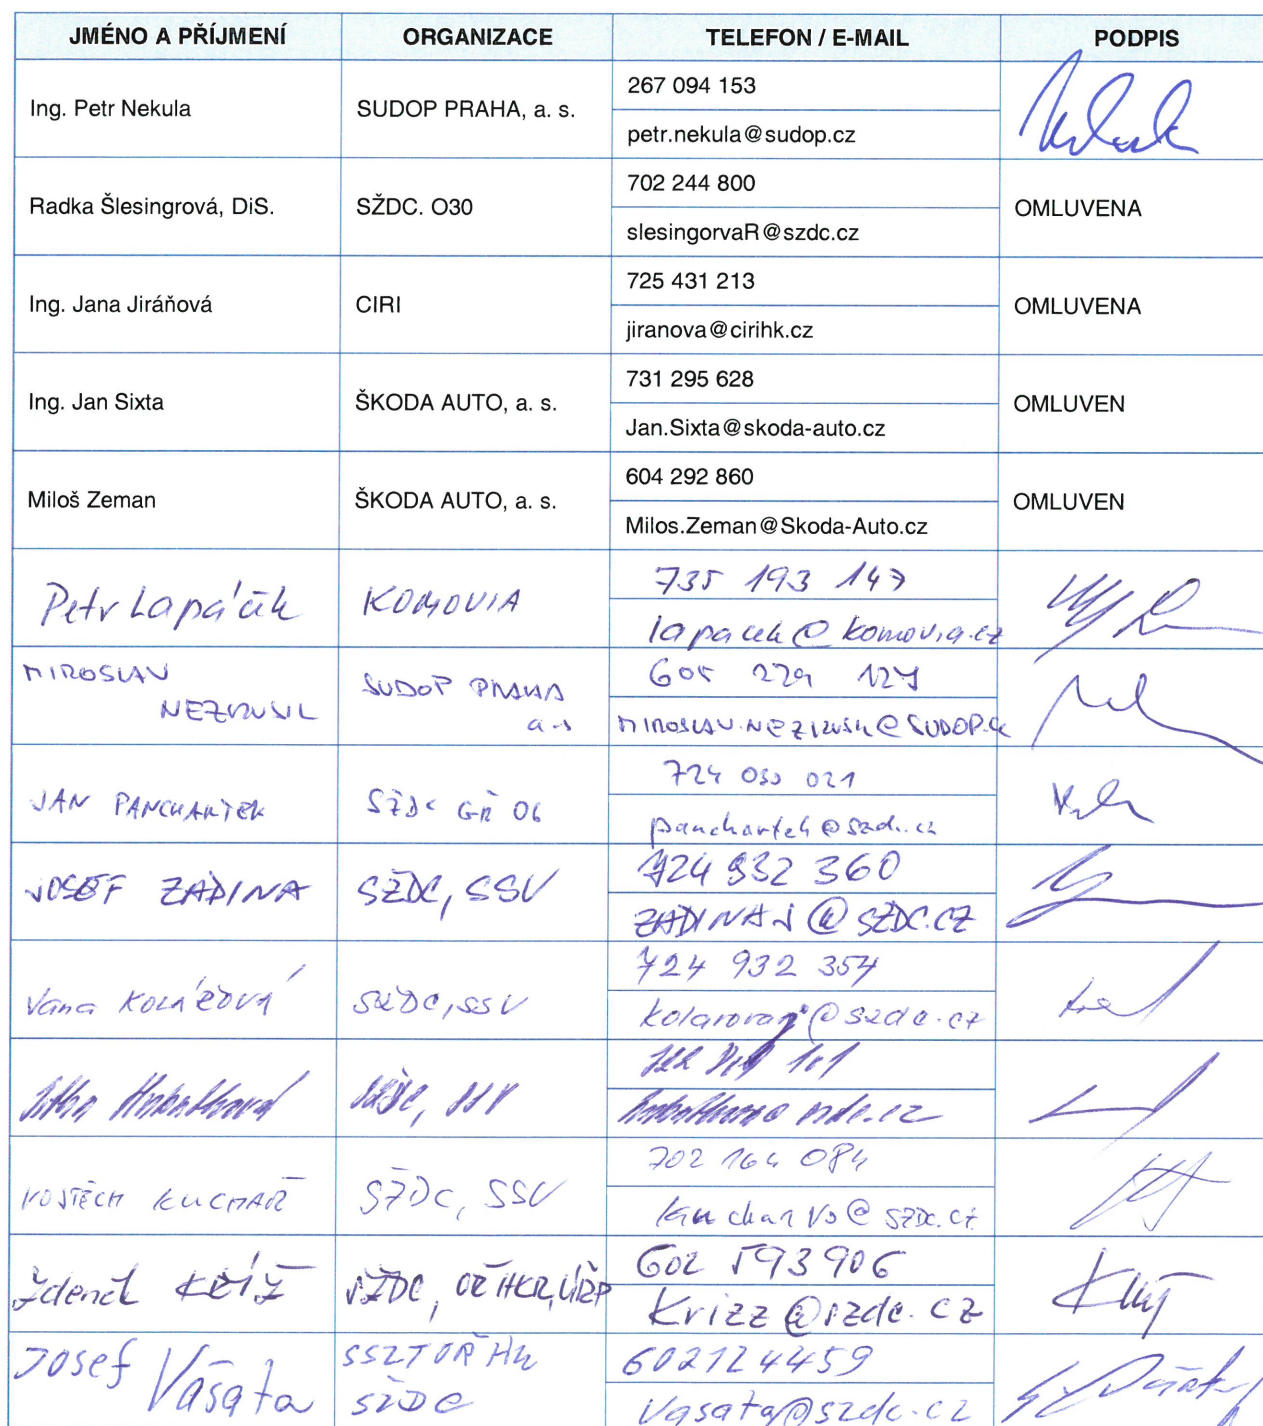 JMÉNO A PŘÍJMENÍ ORGANIZACE TELEFON / E-MAIL PODPIS
Ing. Petr Nekula SUDOP PRAHA, a. s. 267 094 153
petr.nekula@sudop.cz
Radka Šlesingrová, DiS. SŽDC. O30 702 244 800 OMLUVENA
slesingorvaR@szdc.cz
Ing. Jana Jiráňová CIRI 725 431 213 OMLUVENA
jiranova@cirihk.cz
Ing. Jan Sixta ŠKODA AUTO, a. s. 731 295 628 OMLUVEN
Jan.Sixta@skoda-auto.cz
Miloš Zeman ŠKODA AUTO, a. s. 604 292 860 OMLUVEN
Milos.Zeman@Skoda-Auto.cz
Petr Lapáček KOMOVIA 735 193 147
lapacek@komovia.cz
MIROSLAV SUDOP PRAHA 605 229 127
NEZKUSIL a.s MIROSLAV.NEZKUSIL@SUDOP.cz
JAN PANCHARTEK SŽDC GŘ O6 724 030 021
panchartek@szdc.cz
JOSEF ZADINA SŽDC, SSV 724 932 360
ZADINAJ@SŽDC.CZ
Jana KOLÁŘOVÁ SŽDC, SSV 724 932 354
kolarovaj@szdc.cz
SŽDC, SSV
VOJTĚCH KUCHAŘ SŽDC, SSV 702 164 084
KucharVo@SZDC.CZ
Zdeněk KŘÍŽ SŽDC, OŘ HKR, ÚŘP 602 593 906
Krizz@szdc.cz
Josef Vašata SSZT OŘ HK 602124459
SŽDC Vasata@szdc.cz